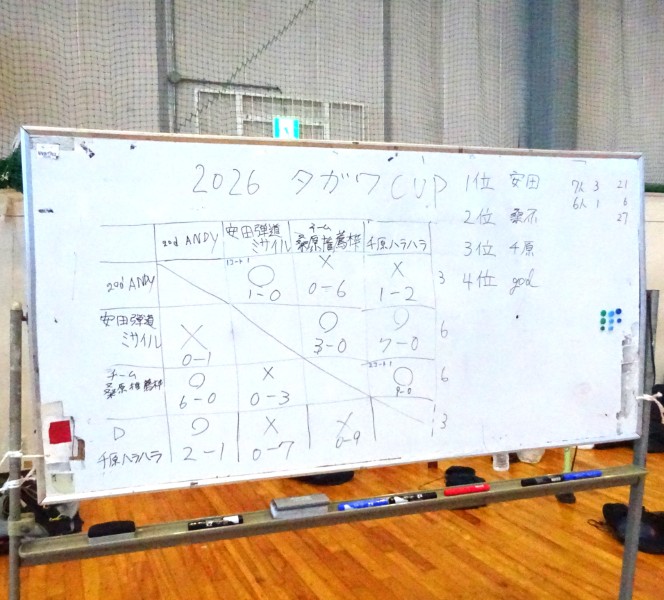 2026 タガワCUP
god ANDY 安田弾道ミサイル チーム桑原推薦枠 千原ハラハラ
god ANDY 1コート1 ○ 1-0 × 0-6 × 1-2 3
安田弾道ミサイル × 0-1 ○ 3-0 ○ 7-0 6
チーム桑原推薦枠 ○ 6-0 × 0-3 2コート1 ○ 9-0 6
D 千原ハラハラ ○ 2-1 × 0-7 × 0-9 3
1位 安田
2位 桑原
3位 千原
4位 god
7人 3 21
6人 1 6
27